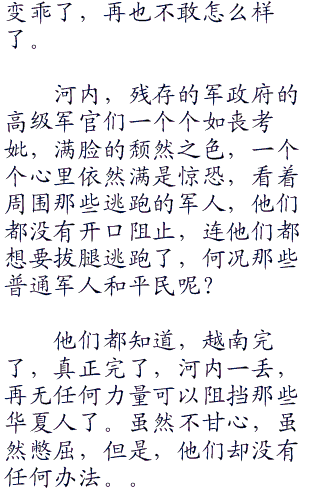 变乖了，再也不敢怎么样
了。
河内，残存的军政府的
高级军官们一个个如丧考
妣，满脸的颓然之色，一个
个心里依然满是惊恐，看着
周围那些逃跑的军人，他们
都没有开口阻止，连他们都
想要拔腿逃跑了，何况那些
普通军人和平民呢？
他们都知道，越南完
了，真正完了，河内一丢，
再无任何力量可以阻挡那些
华夏人了。虽然不甘心，虽
然憋屈，但是，他们却没有
任何办法。。